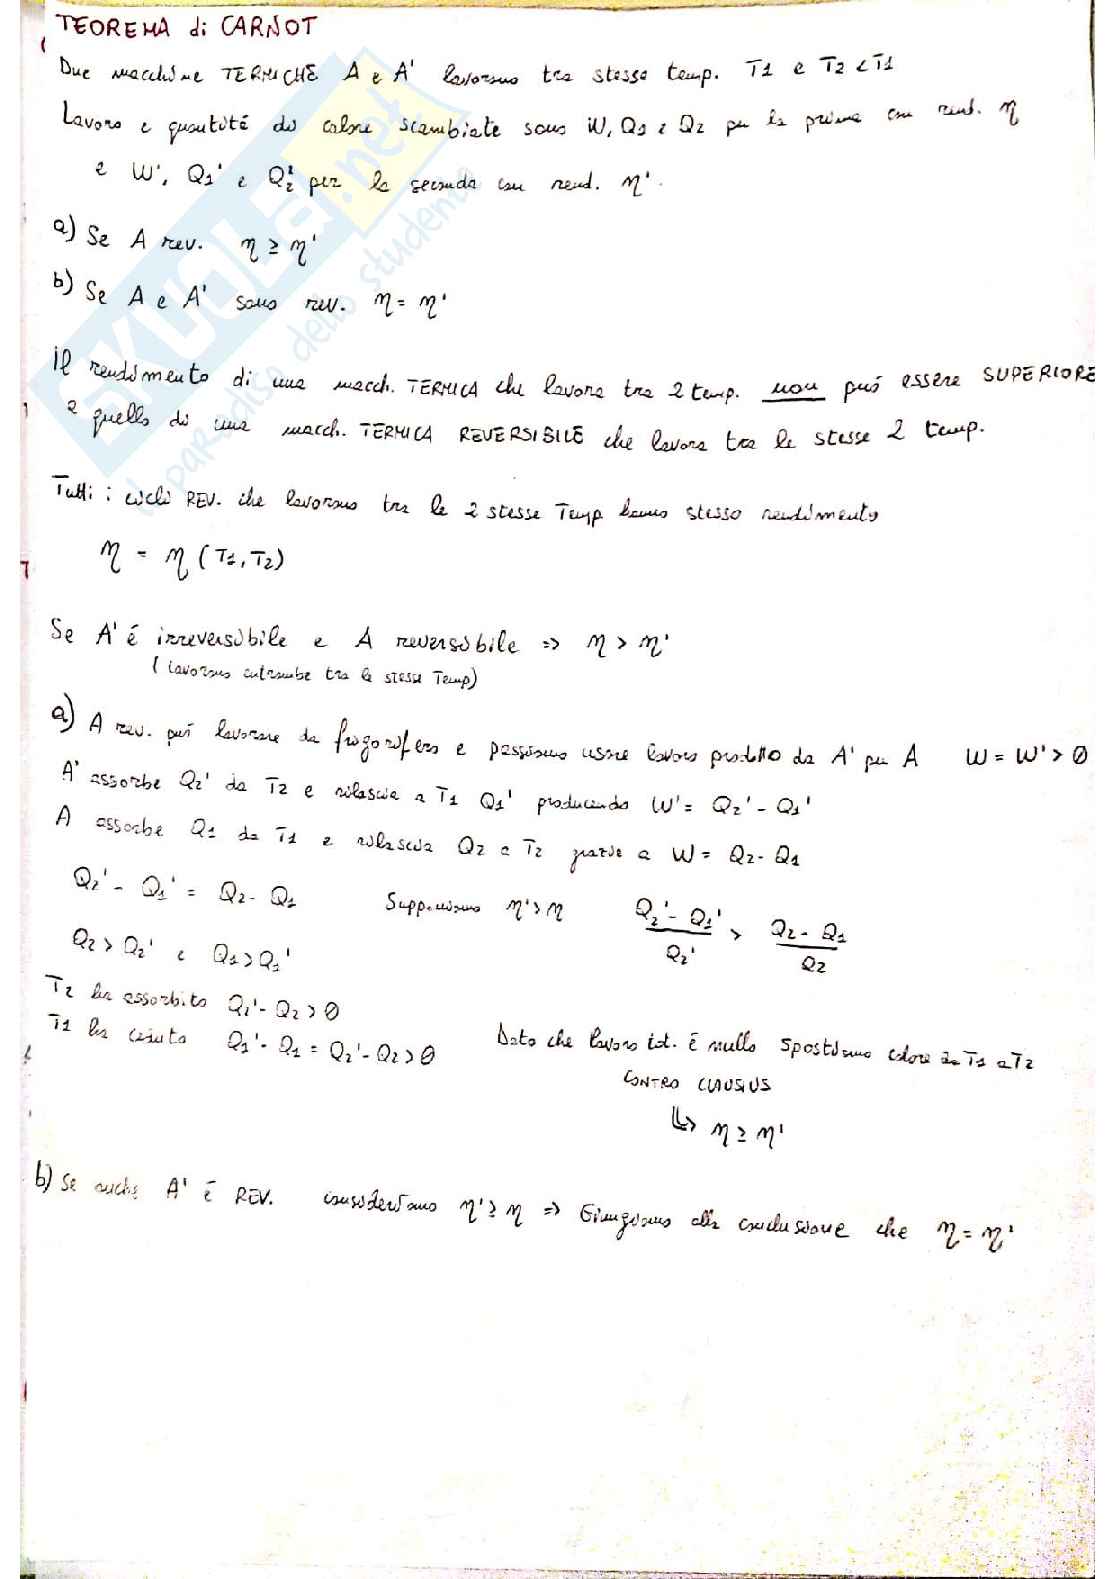 TEOREMA di CARNOT
Due macchine TERMICHE A e A' lavorano tra stesse temp. T1 e T2 < T1
Lavoro e quantità di calore scambiate sono W, Q1 e Q2 per la prima con rend. η
e W', Q1' e Q2' per la seconda con rend. η'.
a) Se A rev. η ≥ η'
b) Se A e A' sono rev. η = η'
Il rendimento di una macch. TERMICA che lavora tra 2 temp. non può essere SUPERIORE
a quello di una macch. TERMICA REVERSIBILE che lavora tra le stesse 2 temp.
Tutti i cicli REV. che lavorano tra le 2 stesse Temp hanno stesso rendimento
η = η (T1, T2)
Se A' é irreversibile e A reversibile => η > η'
(lavorano entrambe tra le stesse Temp)
a) A rev. può lavorare da frigorifero e possiamo usare lavoro prodotto da A' per A W = W' > 0
A' assorbe Q2' da T2 e rilascia a T1 Q1' producendo W' = Q2' - Q1'
A assorbe Q1 da T1 e rilascia Q2 a T2 grazie a W = Q2 - Q1
Q2' - Q1' = Q2 - Q1 Supponiamo η' > η Q2' - Q1' / Q2' > Q2 - Q1 / Q2
Q2 > Q2' e Q1 > Q1'
T2 ha assorbito Q2' - Q2 > 0
T1 ha ceduto Q1' - Q1 = Q2' - Q2 > 0 Dato che lavoro tot. é nullo spostiamo calore da T1 a T2
CONTRO CLAUSIUS
↳ η ≥ η'
b) Se anche A' é REV. consideriamo η' ≥ η => Giungiamo alla conclusione che η = η'
SKUOLA.net
il paradiso dello studente